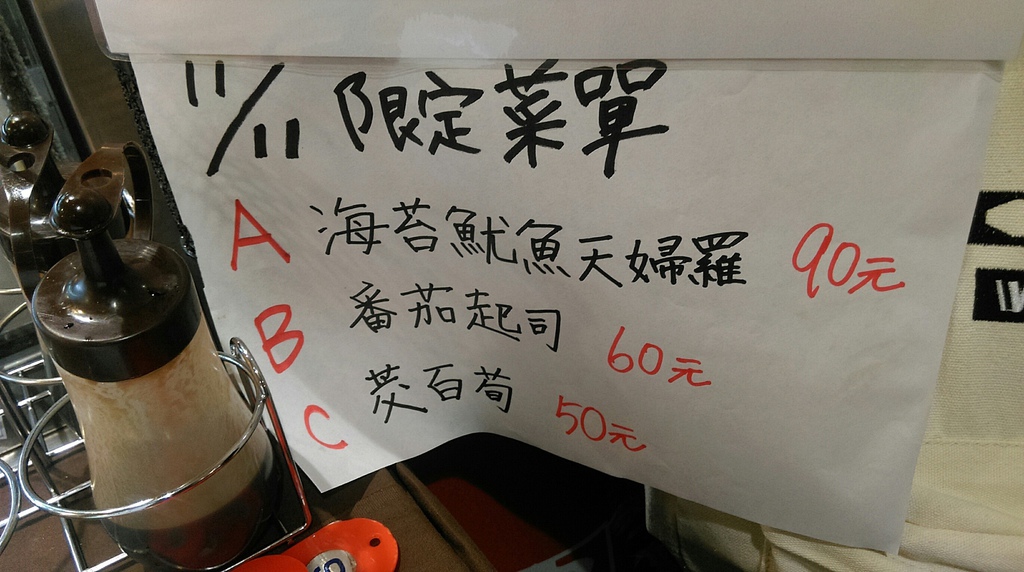 11/11 限定菜單
A 海苔魷魚天婦羅 90元
B 番茄起司 60元
C 茭百荀 50元